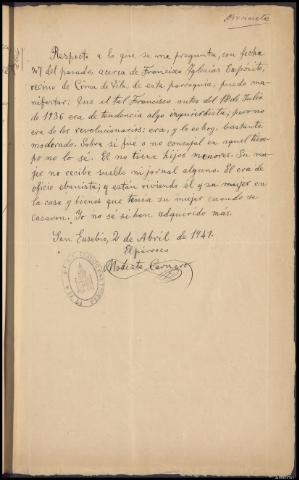 Respecto a lo que se me pregunta, con fecha
27 del pasado, acerca de Francisco Iglesias Expósito,
vecino de Cima de Vila de esta parroquia, puedo ma-
nifestar: Que el tal Francisco antes del 18 de Julio
de 1936 era de tendencia algo izquierdista, pero no
era de los revolucionarios: era, y lo es hoy, bastante
moderado. Sobre si fue o no concejal en aquel tiem-
po no lo sé. El no tiene hijos menores. Su mu-
jer no recibe sueldo ni jornal alguno. El era de
oficio ebanista; y están viviendo él y su mujer en
la casa y bienes que tenia su mujer cuando se
casaron. Yo no sé si han adquirido mas.
San Eusebio, 2 de Abril de 1941.
El párroco
Modesto Carnero